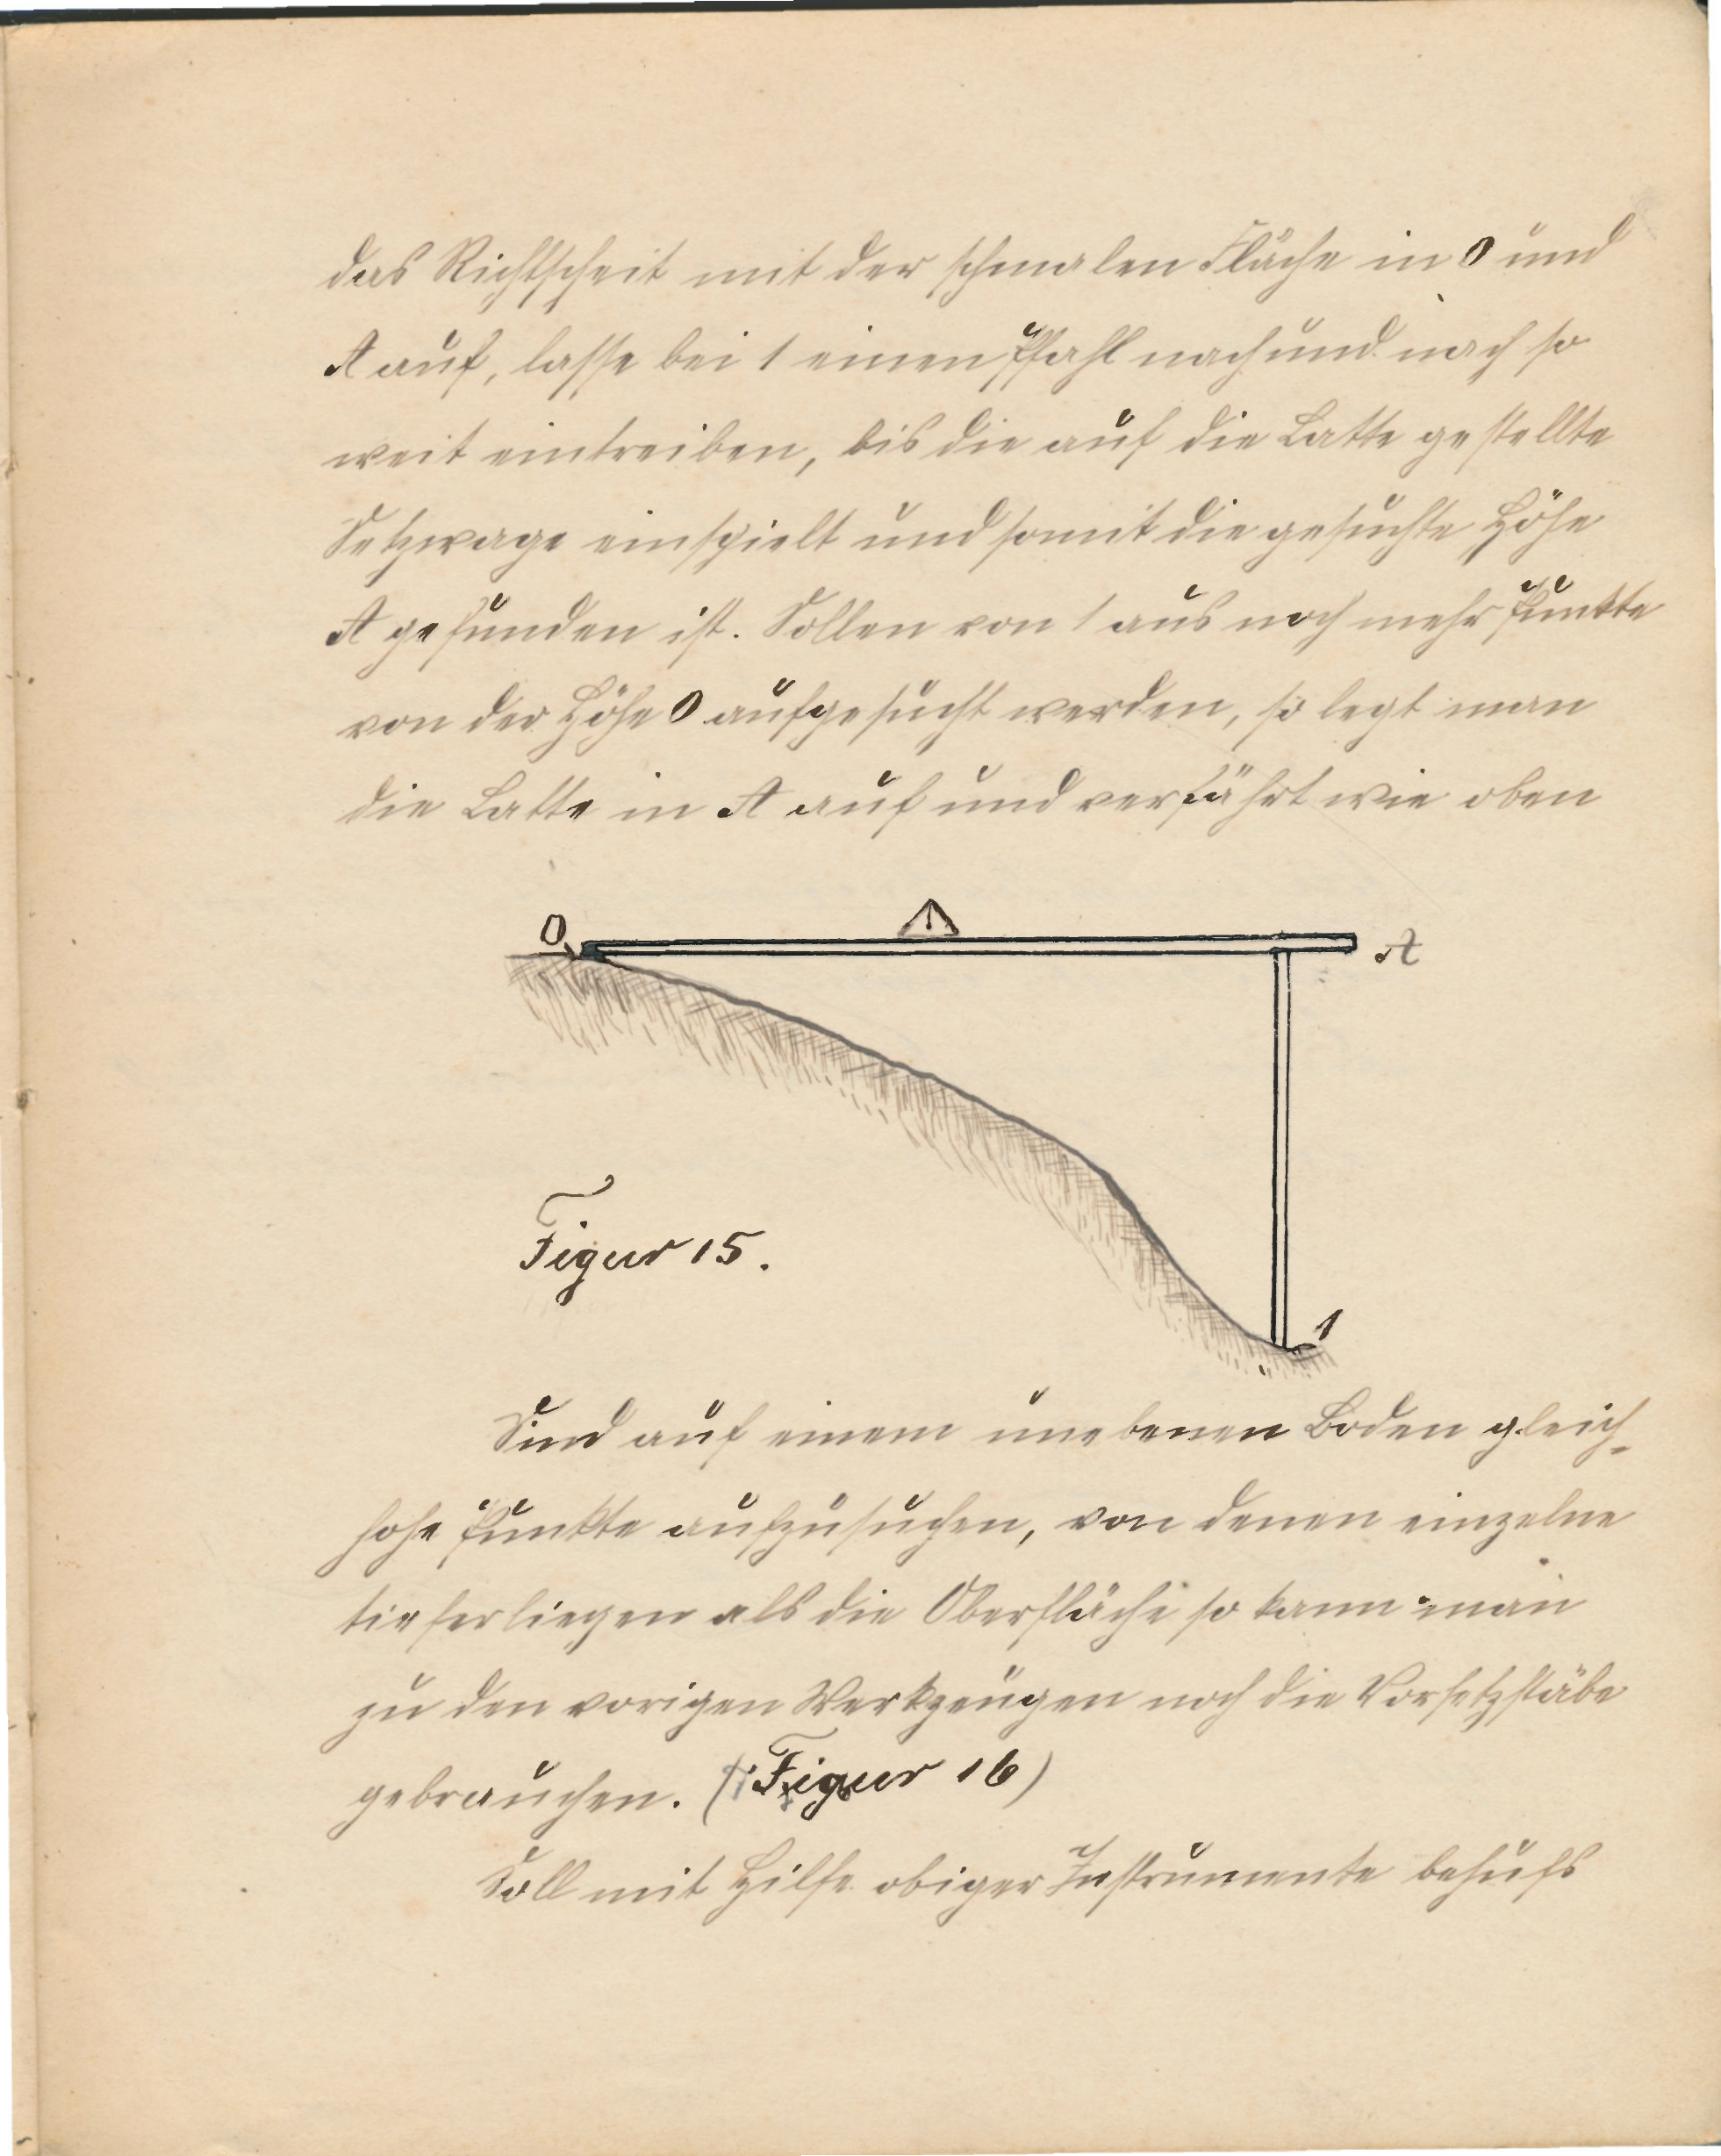 das Richtscheit mit der schmalen Fläche in 0 und
A auf, lasse bei 1 einen Pfahl nach und nach so
weit eintreiben, bis die auf die Latte gestellte
Setzwage einspielt und somit die gesuchte Höhe
A gefunden ist. Sollen von 1 aus noch mehr Punkte
von der Höhe 0 aufgesucht werden, so legt man
die Latte in A auf und verfährt wie oben
0
A
Figur 15.
1
Sind auf einem unebenen Boden gleich-
hohe Punkte aufzusuchen, von denen einzelne
tieferliegen als die Oberfläche so kann man
zu den vorigen Werkzeugen noch die Vorsetzstäbe
gebrauchen. (Figur 16)
Soll mit Hilfe obiger Instrumente behufs